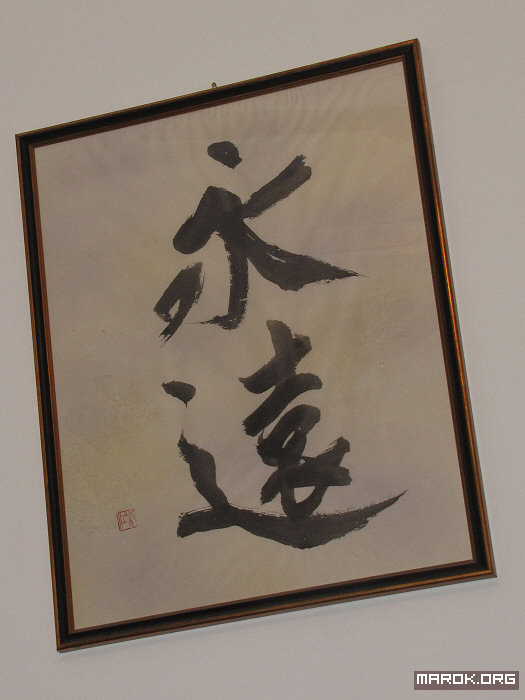 永遠
MAROK.ORG